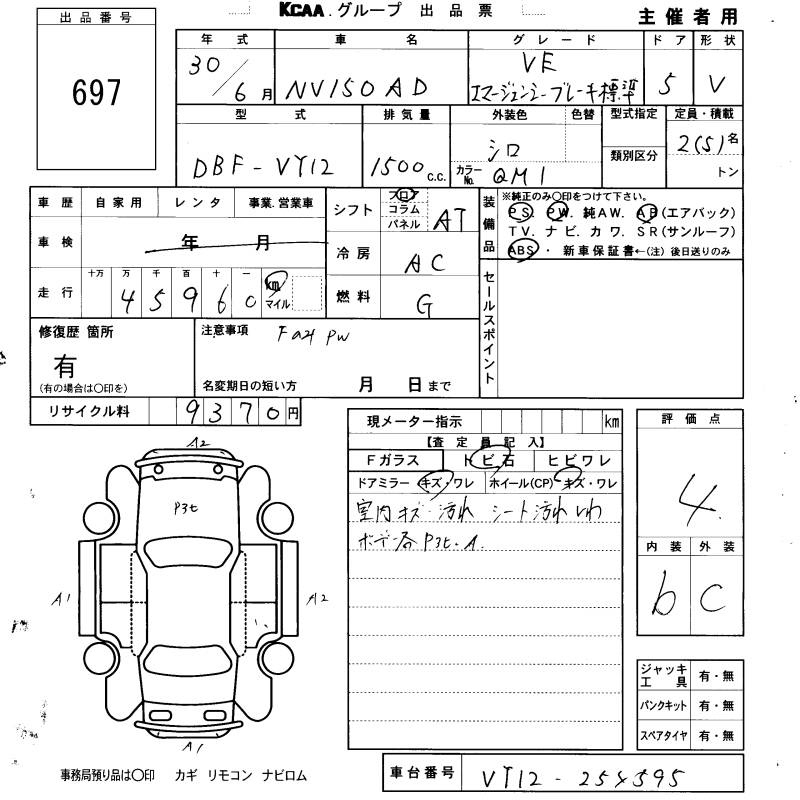 KCAA.グループ 出品票
主催者用
出品番号
697
年式 車名 グレード ドア 形状
30/6月 NV150AD VE 5 V
エマージェンシーブレーキ標準
型式 排気量 外装色 色替 型式指定 定員・積載
DBF-VY12 1500c.c. シロ 類別区分 2(5)名
カラーNo. QM1 トン
車歴 自家用 レンタ 事業.営業車
車検 年 月
走行 十万 万 千 百 十 一
4 5 9 6 0 km マイル
シフト フロア コラム パネル AT
冷房 AC
燃料 G
装備品 ※純正のみ〇印をつけて下さい。
PS. PW. 純AW. AB(エアバック)
TV. ナビ. カワ. SR(サンルーフ)
ABS・ 新車保証書←(注) 後日送りのみ
セールスポイント
修復歴 箇所
有
(有の場合は〇印を)
注意事項
名変期日の短い方 月 日まで
リサイクル料 9370円
現メーター指示 km
【査定員記入】
Fガラス トビ石 ヒビワレ
ドアミラー キズ・ワレ ホイール(CP) キズ・ワレ
室内キズ・汚れ シート汚れ
P3t・A.
評価点
4
内装 外装
b C
A2
P3t
A1 A2
A1
ジャッキ工具 有・無
パンクキット 有・無
スペアタイヤ 有・無
事務局預り品は〇印 カギ リモコン ナビロム
車台番号 VY12-254595